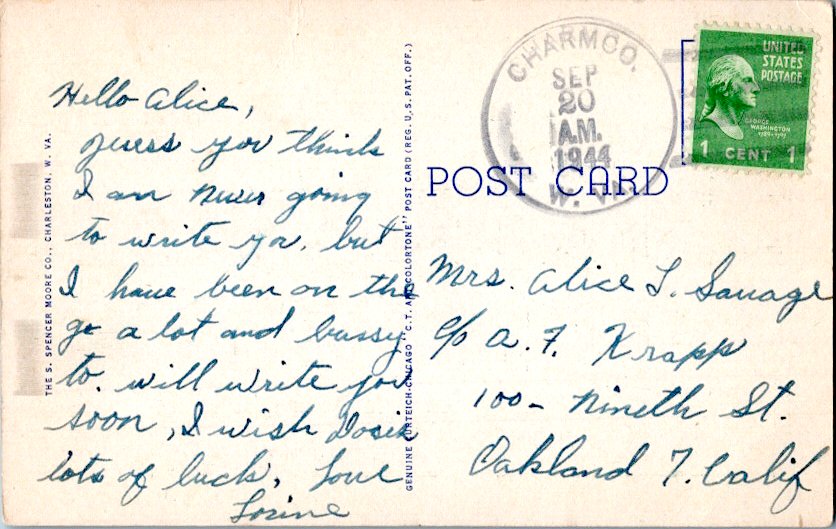 Hello Alice,
guess you think
I am never going
to write you, but
I have been on the
go a lot and bussy
to. will write you
soon, I wish
lots of luck, Love
THE S. SPENCER MOORE CO., CHARLESTON, W. VA.
GENUINE CURTEICH-CHICAGO "C.T. ART-COLORTONE" POST CARD (REG. U.S. PAT. OFF.)
CHARMCO.
SEP
20
A.M.
1944
W. VA.
UNITED
STATES
POSTAGE
GEORGE
WASHINGTON
1789-1797
1 CENT 1
POST CARD
Mrs. Alice L. Savage
c/o A. F. Krapp
100- Nineth St.
Oakland 7. Calif